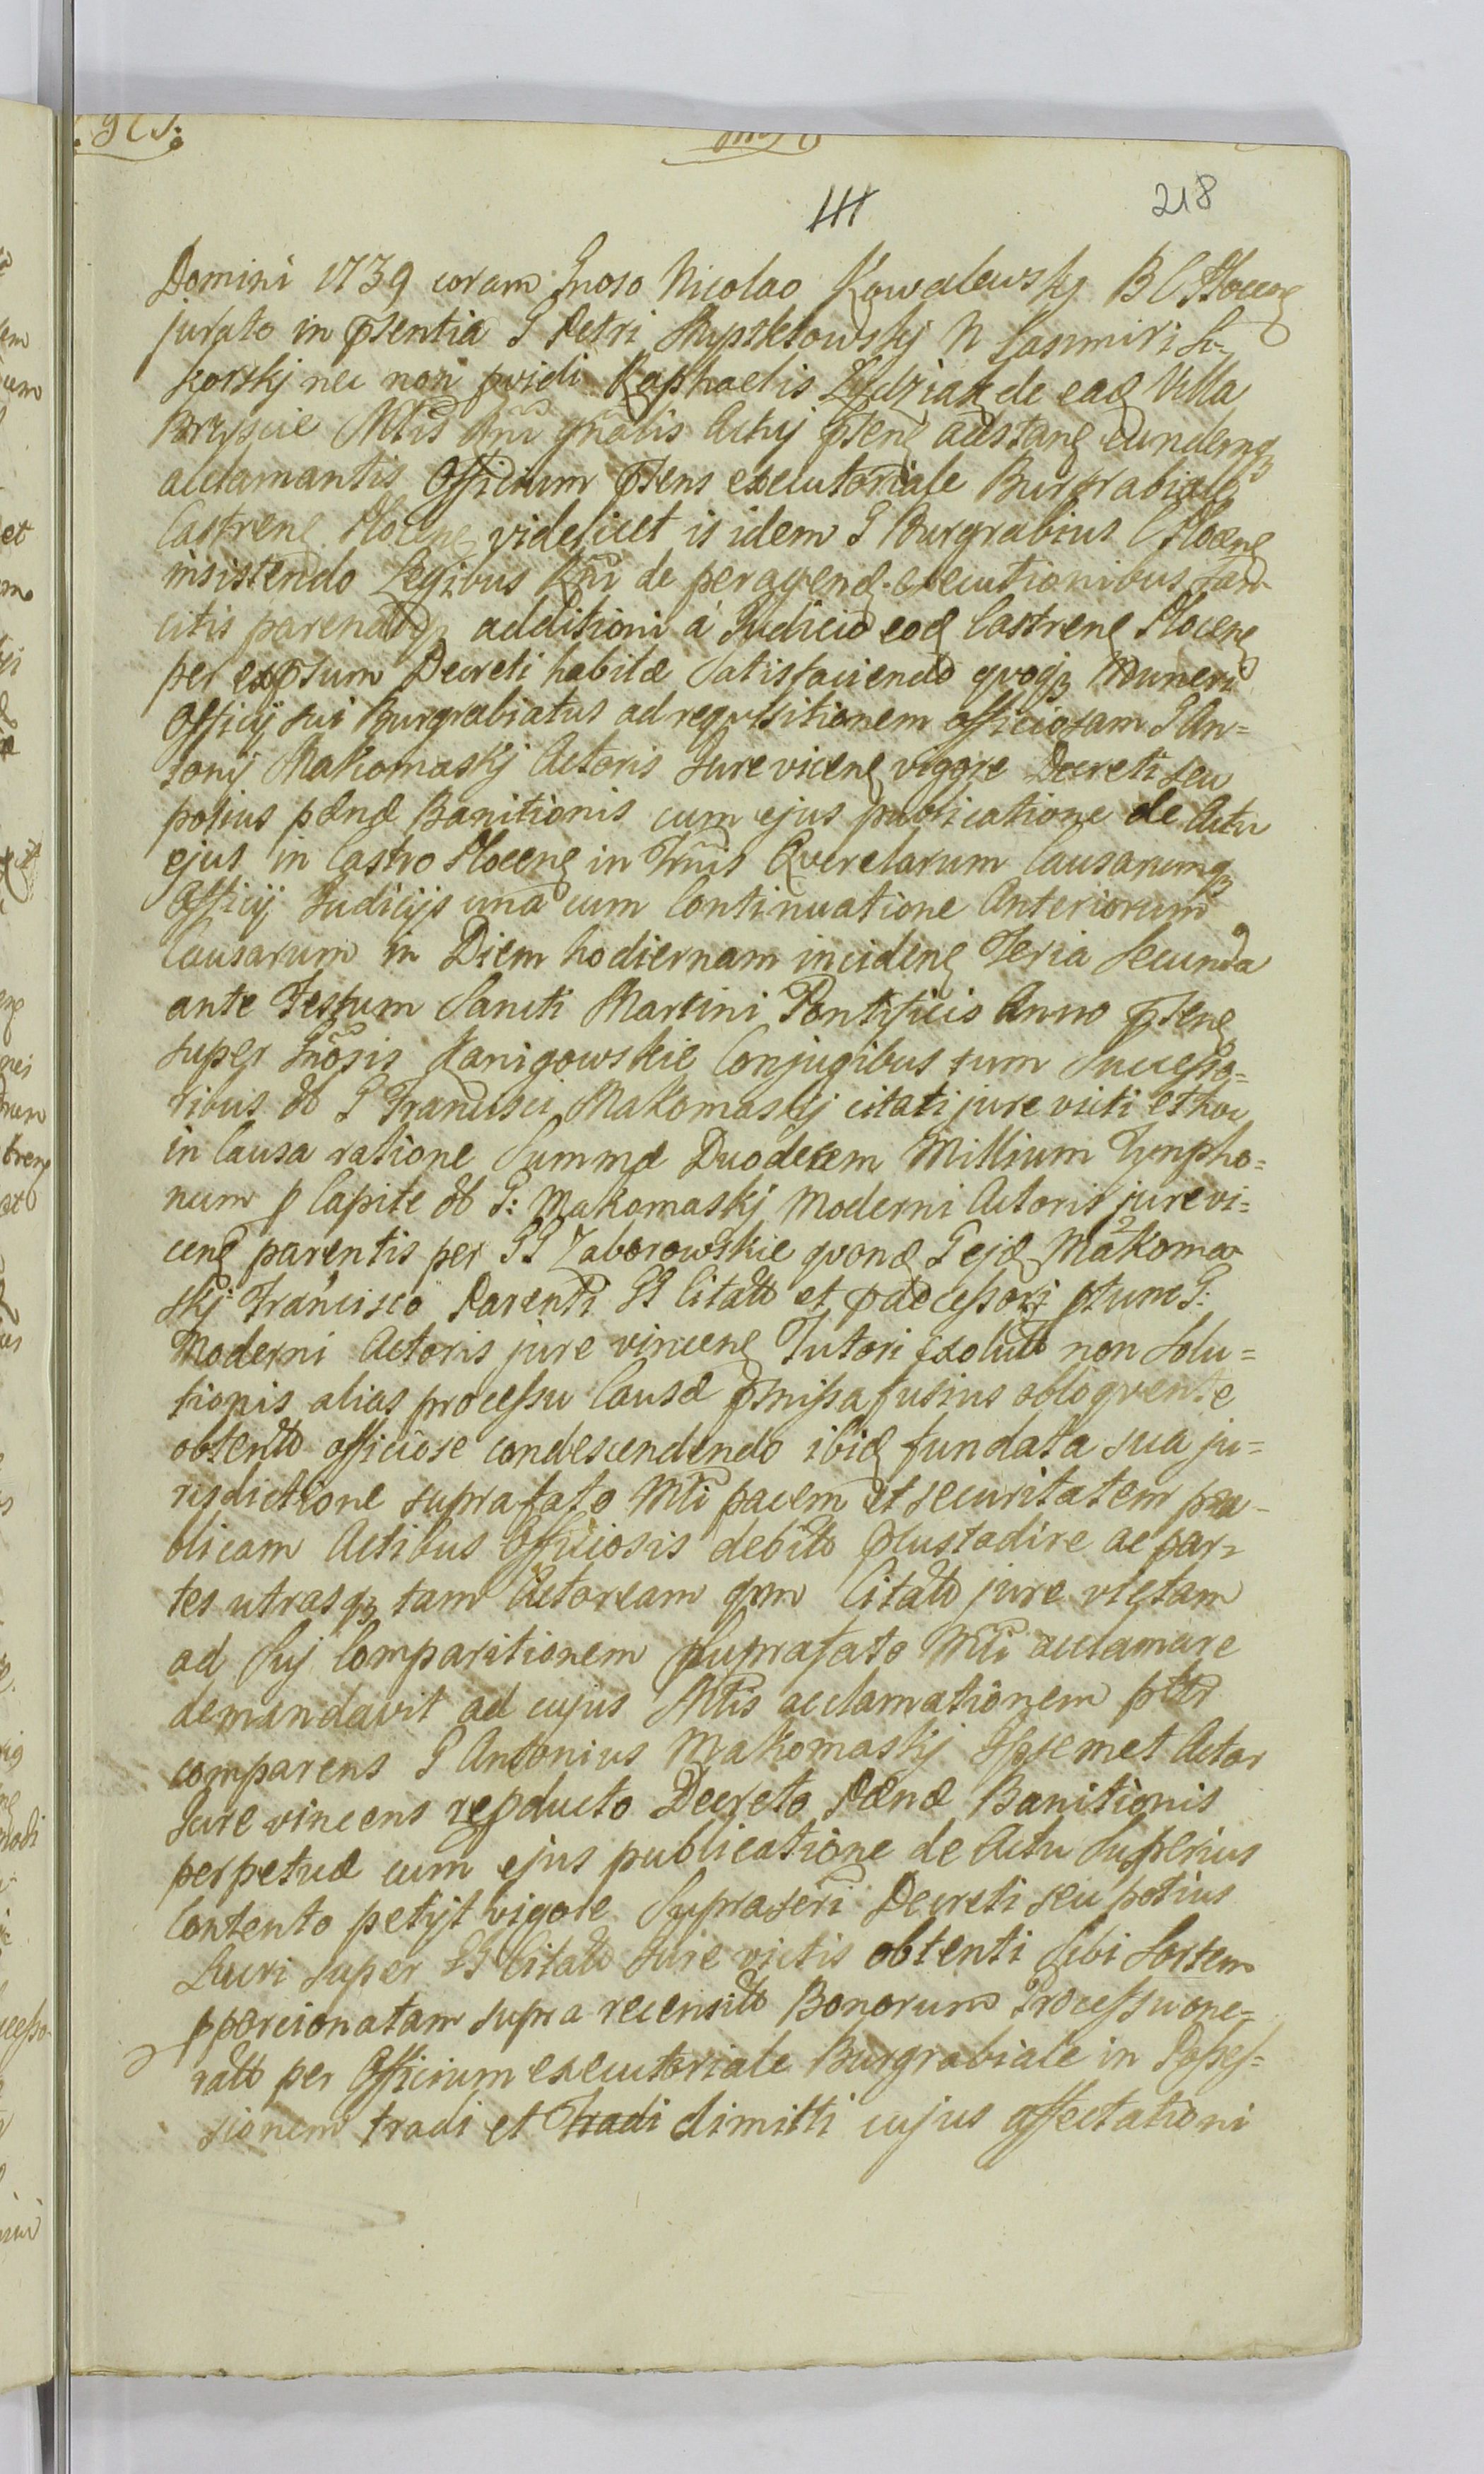 218
Domini 1739 coram Gnoso Nicolao Kowalewskj B C Plocen
jurato in psentia G Petri Rupsklowskj N Casimiri Si-
korskj nec non pvidi Raphaelis de ead Villa
Brzyscie Mtis Rni gnalis Actuj psen adstan eundemq
acclamantis Officium psens executoriale Burgrabiale
Castren Plocen videlicet is idem G Burgrabius C Plocen
insistendo Legibus Rni de peragend executionibus san-
citis parendoq additioni á Judicio eod Castren Plocen
per expsum Decreti habitæ satisfaciendo quoq muneri
Officij sui Burgrabiatus ad requisitionem officiosam G An=
tonij Makomaskj Actoris Jure vicen vigore Decreti seu
potius pænæ Banitionis cum ejus publicatione de Actu
ejus in Castro Plocen in Trnis Querelarum Causarumq
Officij Judicijs una cum Continuatione Anteriorum
Causarum in Diem hodiernam inciden Feria Secunda
ante Festum Sancti Martini Pontificis Anno psen
super Gnosis Kanigowskie Conjugibus tum Successo=
ribus G Francisci Makomaskj citati jure victi et hoc
in Causa ratione Summæ Duodecem Millium Tympho=
num p Capite G: Makomaskj Moderni Actoris jure vi=
cen parentis per GG Zaborowskie quond G Makoma
skj Francisco Parenti GG Citat et pdecessori ptunc G:
Moderni Actoris jure vincen Tutori Exolut non Solu=
tionis alias processu Causæ pmissa fusius obloquente
obtent officiose condescendendo ibid fundata sua ju=
risdictione suprafato Mti pacem et securitatem pu-
blicam Actibus Officiosis debit pcustodire ac par=
tes utrasq tam Actoream qm Citat jure victam
ad Suj Comparitionem suprafato Mti acclamare
demandavit ad cujus Mtis acclamationem ptr
comparens G Antonius Makomaskj Ipsemet Actor
Jure vincens repducto Decreto Pænæ Banitionis
perpetuæ cum ejus publicatione de Actu Superius
Contento petijt vigore Suprasèri Decreti seu potius
Lucri super GG Citat Jure victis obtenti Sibi Sortem
pporcionatam supra recensit Bonorum Processu one=
rat per Officium executoriale Burgrabiale in Posses=
sionem tradi et Tradi dimitti cujus affectationi